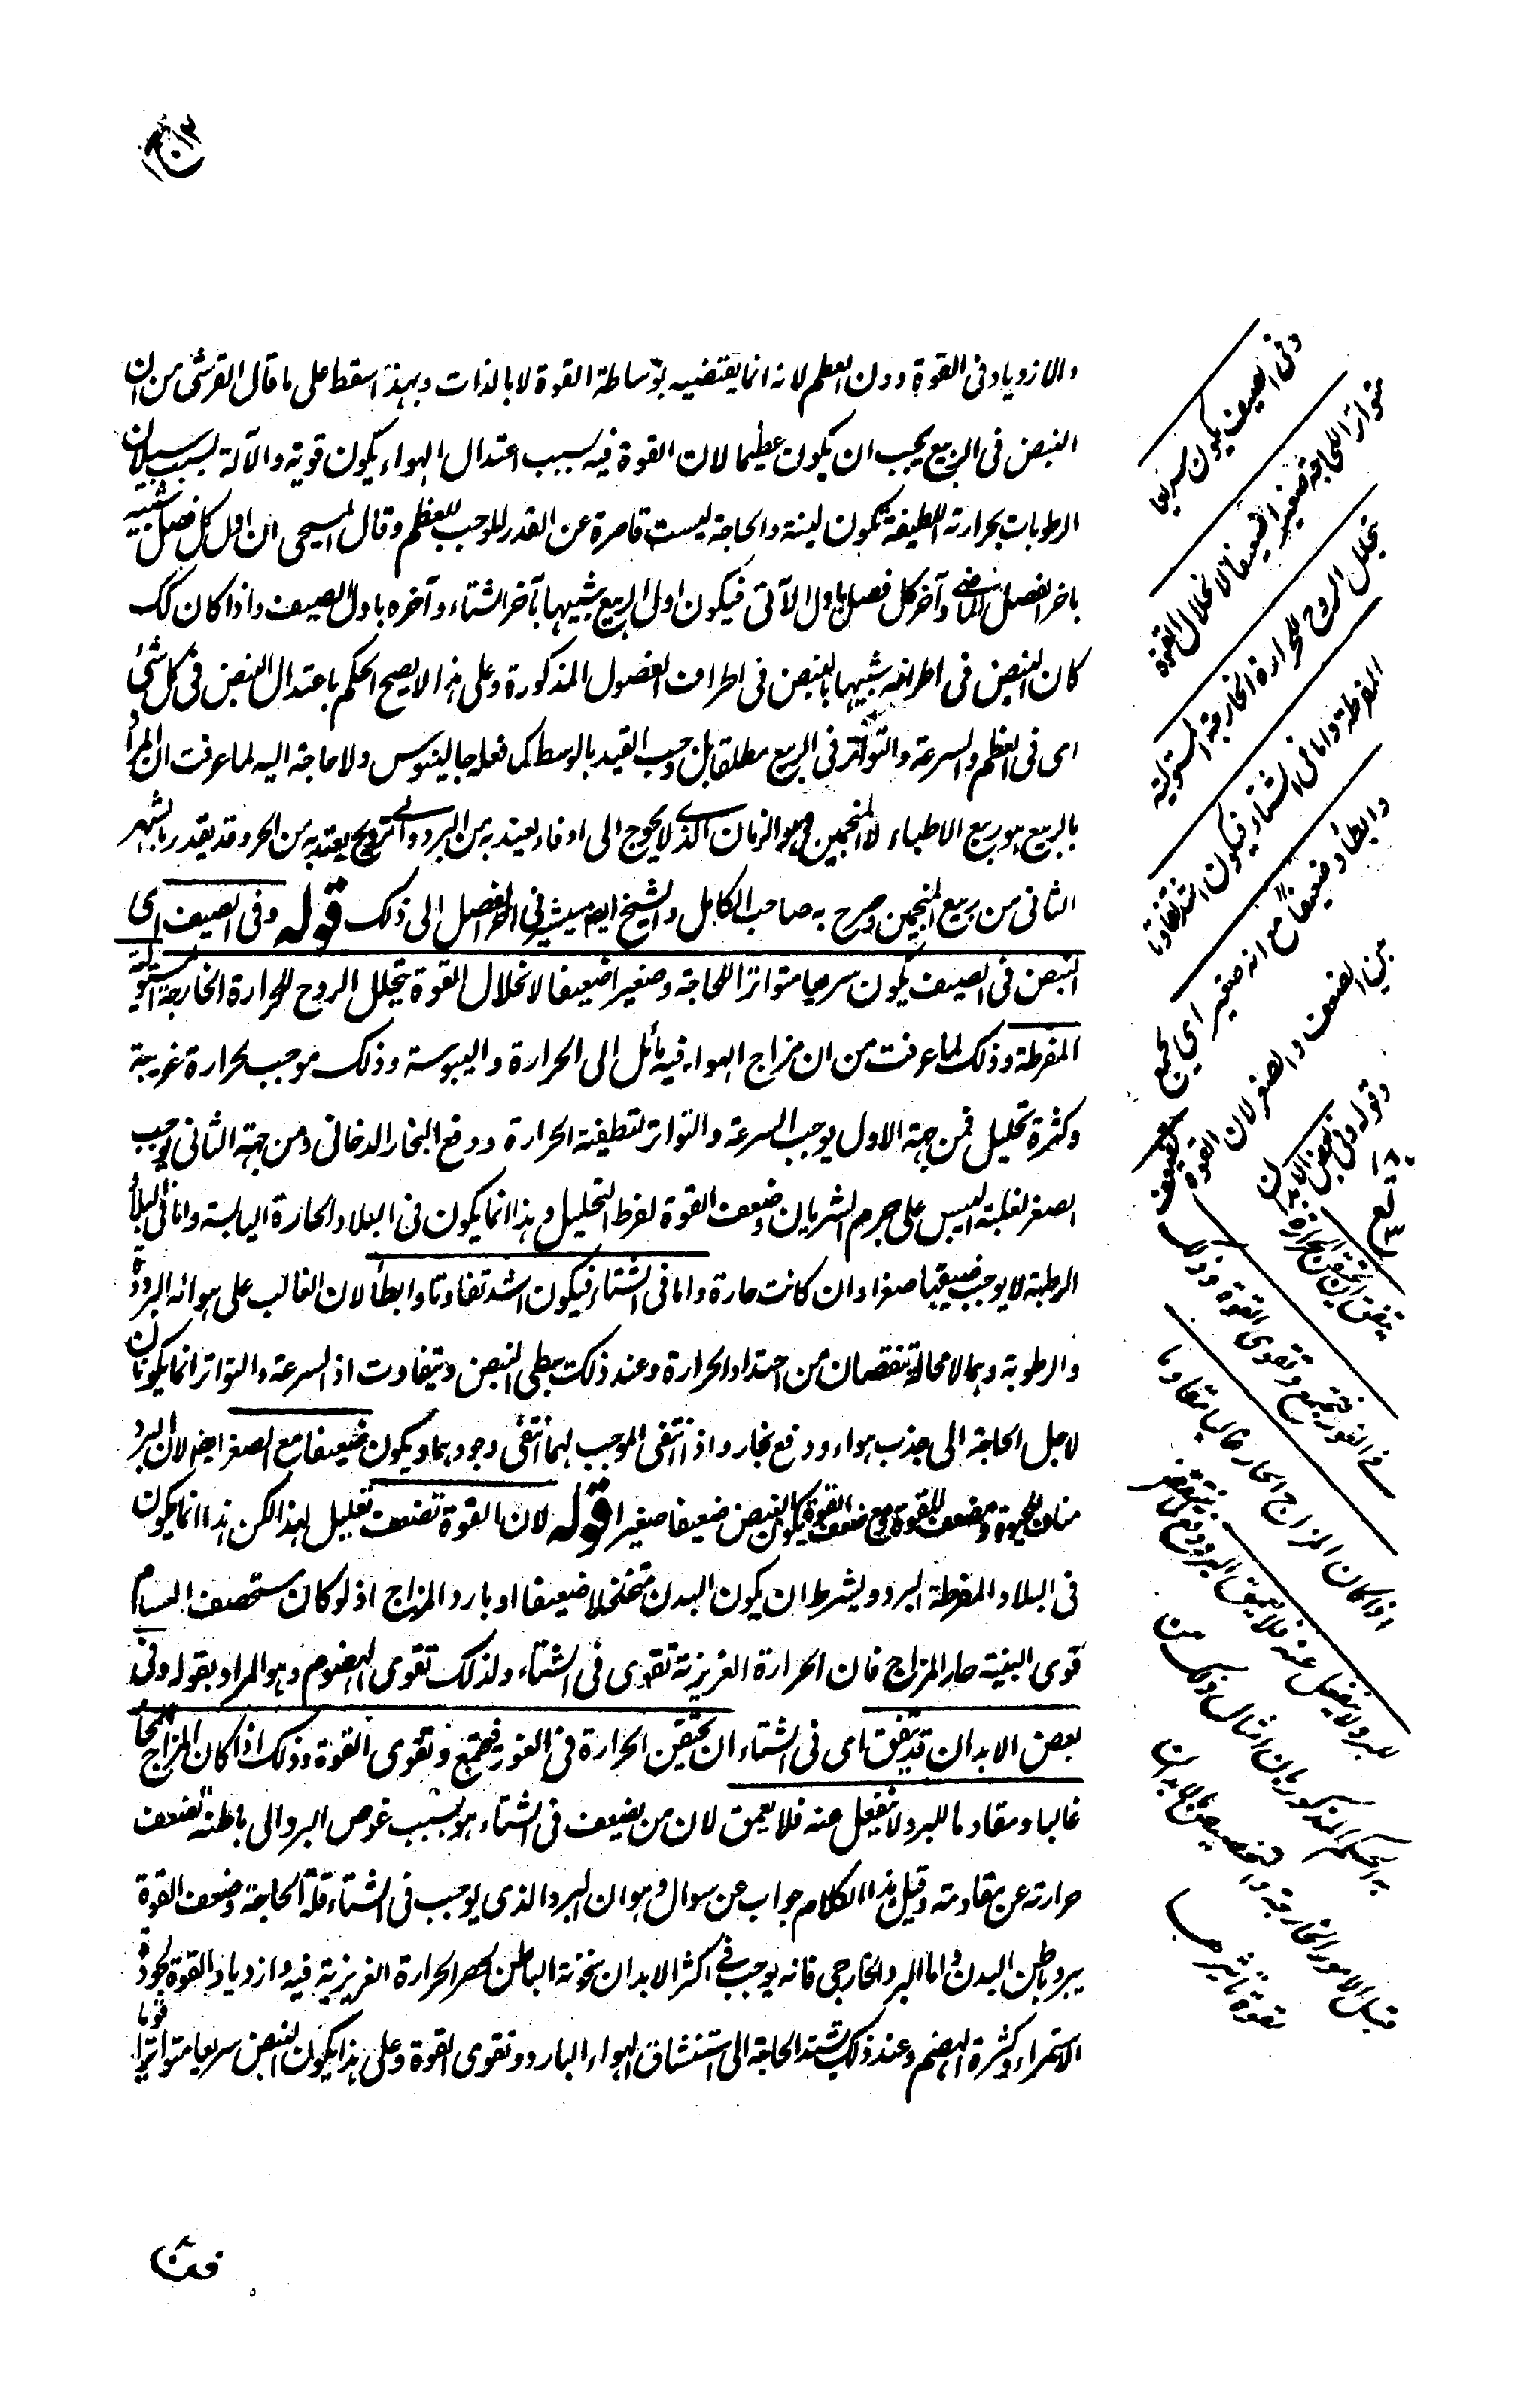 والازدياد فى القوة دون العظم لانه انما يقتضيه بوساطة القوة لا بالذات وبهذا سقط على ما قال القرشى من ان
النبض فى الربيع يجب ان يكون عظيما لان القوة فيه بسبب اعتدال الهواء يكون قوية والآلة بسبب سيلان
الرطوبات بحرارته اللطيفة تكون لينة والحاجة ليست قاصرة عن القدر الموجب للعظم وقال المسيحى ان اول كل فصل شبيه
باخر الفصل الماضى وآخر كل فصل باول الآتى فيكون اول الربيع شبيها بآخر الشتاء وآخره باول الصيف واذا كان كك
كان النبض فى اطرافه شبيها بالنبض فى اطراف الفصول المذكورة وعلى هذا لا يصح الحكم باعتدال النبض فى كل شئ
اى فى العظم والسرعة والتواتر فى الربيع مطلقا بل وجب القيد بالوسط كما فعله جالينوس ولا حاجة اليه لما عرفت ان المراد
بالربيع هو ربيع الاطباء لا المنجمين وهو الزمان الذى لا يحوج الى ادفاء يعتد به من البرد والى ترويح يعتد به من الحر وقد يقدر بالشهر
الثانى من ربيع المنجمين وصرح به صاحب الكامل والشيخ ايضا يشير فى الفصل الى ذلك قوله وفى الصيف اى
النبض فى الصيف يكون سريعا متواترا للحاجة وصغيرا ضعيفا لانحلال القوة بتحلل الروح للحرارة الخارجة المستولية
المفرطة وذلك لما عرفت من ان مزاج الهواء فيه مائل الى الحرارة واليبوسة وذلك موجب لحرارة غريبة
وكثرة تحليل فمن جهة الاول يوجب السرعة والتواتر لتطفئة الحرارة ودفع البخار الدخانى ومن جهة الثانى يوجب
الصغر لغلبة اليبس على جرم الشريان وضعف القوة لفرط التحليل وهذا انما يكون فى البلاد الحارة اليابسة واما فى البلاد
الرطبة لا يوجب ضيقها صغرا وان كانت حارة واما فى الشتاء فيكون اشد تفاوتا وابطأ لان الغالب على هوائه البرودة
والرطوبة وهما لا محالة تنقصان من احتداد الحرارة وعند ذلك يبطى النبض ويتفاوت اذ السرعة والتواتر انما يكونان
لاجل الحاجة الى جذب هواء ودفع بخار واذا انتفى الموجب لهما انتفى وجودهما ويكون ضعيفا مع الصغر ايضا لان البرد
مناف للحيوة ومضعف للقوة ومع ضعف القوة يكون النبض ضعيفا صغيرا قوله لان القوة تضعف تعليل لهذا لكن هذا انما يكون
فى البلاد المفرطة البرد وبشرط ان يكون البدن متخلخلا ضعيفا او بارد المزاج اذ لو كان مستحصف المسام
قوى البنية حار المزاج فان الحرارة الغريزية تقوى فى الشتاء ولذلك تقوى الهضوم وهو المراد بقوله وفى
بعض الابدان قد يتفق اى فى الشتاء ان تحتقن الحرارة فى الغور فتجتمع وتقوى القوة وذلك اذا كان المزاج الحار
غالبا ومقاوما للبرد لا ينفعل عنه فلا يعمق لان من يضعف فى الشتاء هو بسبب غوص البرد الى باطنه لضعف
حرارته عن مقاومته وقيل هذا الكلام جواب عن سوال وهو ان البرد الذى يوجب فى الشتاء قلة الحاجة وضعف القوة
يبرد باطن البدن واما البرد الخارجى فانه يوجب فى اكثر الابدان سخونة الباطن لحصر الحرارة الغريزية فيه وازدياد القوة لجودة
الاستمراء وكثرة الهضم وعند ذلك تشتد الحاجة الى استنشاق الهواء البارد وتقوى القوة وعلى هذا يكون النبض سريعا متواترا قويا
وفى الصيف يكون سريعا
متواترا للحاجة صغيرا ضعيفا لانحلال القوة
بتحلل الروح للحرارة الخارجة المستولية
المفرطة واما فى الشتاء فيكون اشد تفاوتا
وابطأ وضعيفا مع انه صغير اى يجمع
بين الضعف والصغر لان القوة
تضعف
وقوله وفى بعض الابدان
يتفق ان تحتقن الحرارة
فى الغور فتجتمع وتقوى القوة وذلك
اذا كان المزاج الحار غالبا مقاوما
للبرد ولا ينفعل عنه فلا يعمق البرد